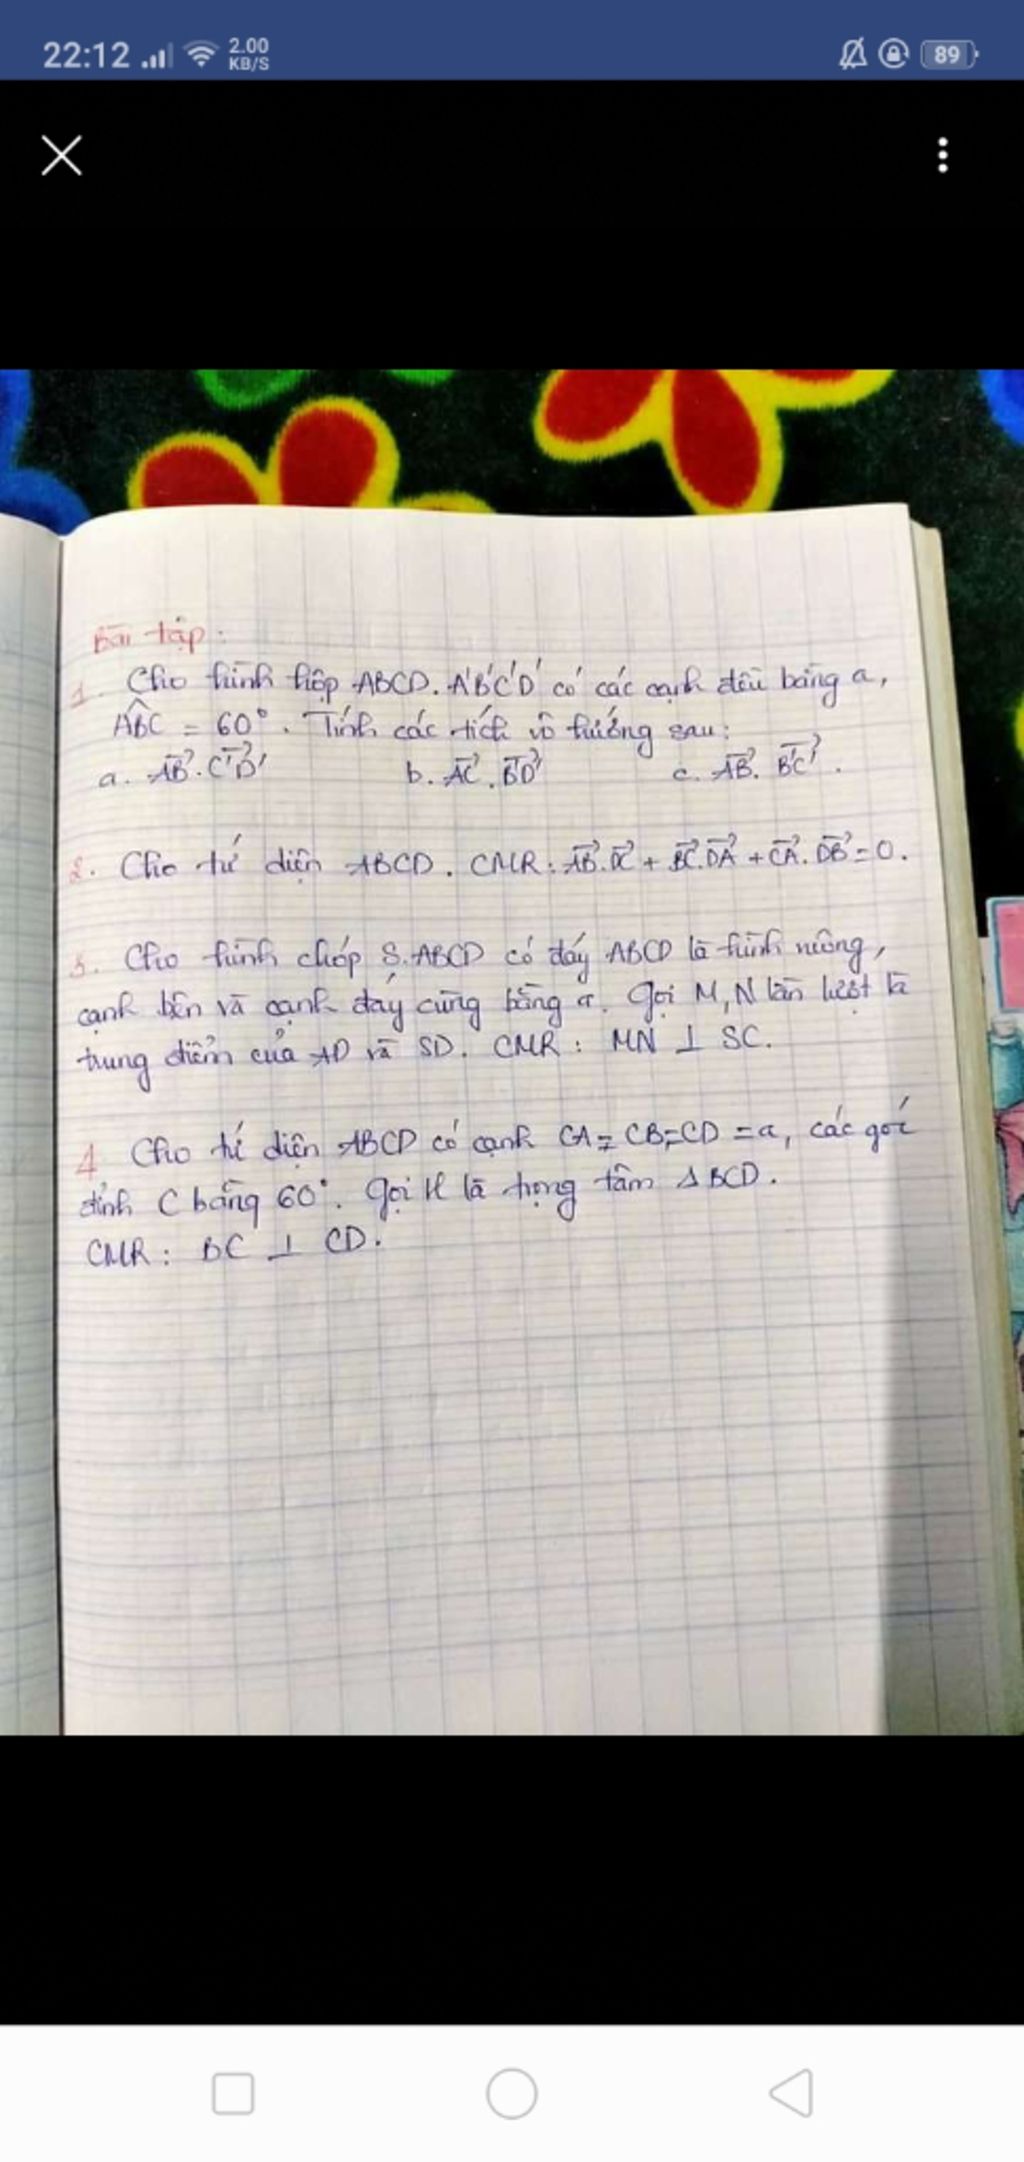 22:12 2.00 KB/S 89
Bài tập:
1. Cho hình hộp ABCD.A'B'C'D' có các cạnh đều bằng a,
ABC = 60°. Tính các tích vô hướng sau:
a. AB. C'D' b. AC. B'D' c. AB. B'C'.
2. Cho tứ diện ABCD. CMR: AB.DC + BC.DA + CA.DB = 0.
3. Cho hình chóp S.ABCD có đáy ABCD là hình vuông,
cạnh bên và cạnh đáy cùng bằng a. Gọi M, N lần lượt là
trung điểm của AD và SD. CMR: MN ⊥ SC.
4 Cho tứ diện ABCD có cạnh CA = CB = CD = a, các góc
đỉnh C bằng 60°. Gọi H là trọng tâm Δ BCD.
CMR: BC ⊥ CD.